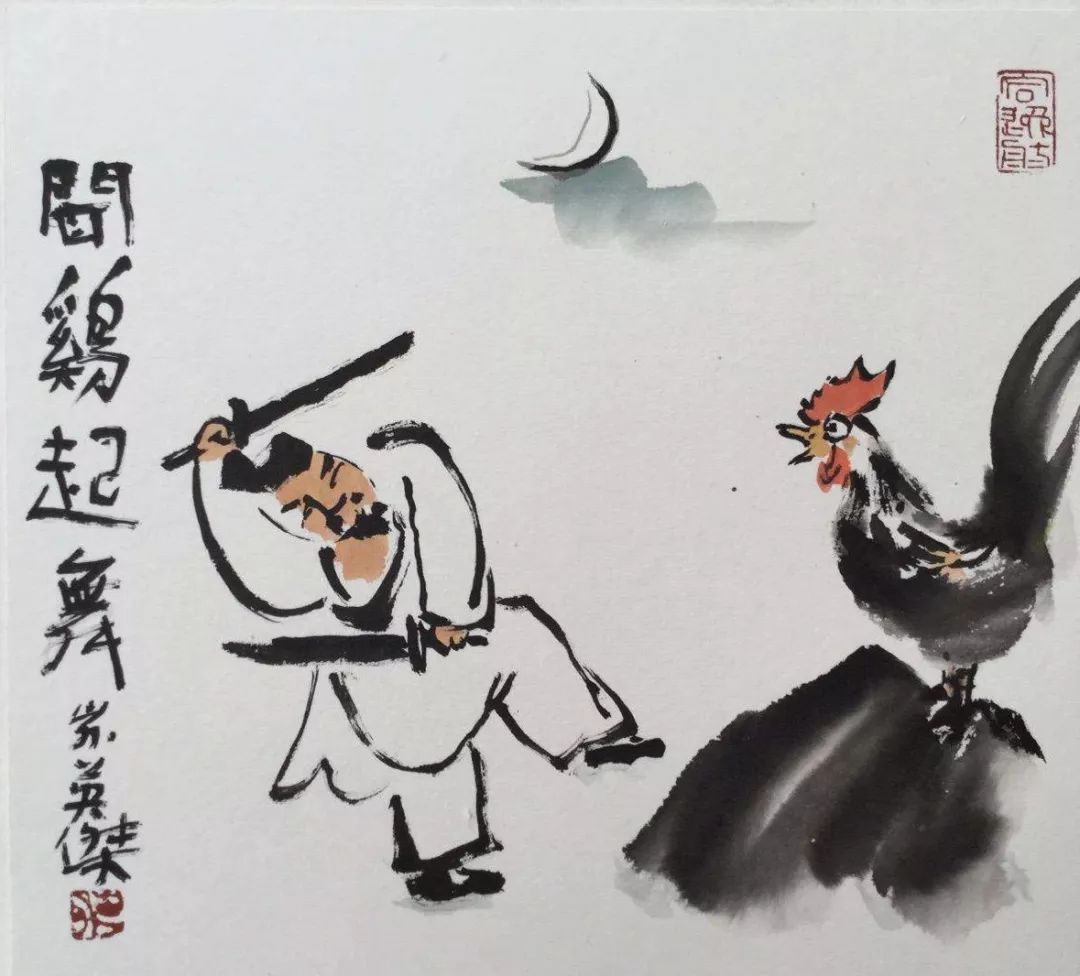 聞鷄起舞 英傑